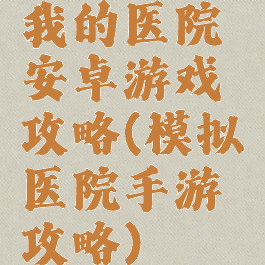 我的医院
安卓游戏
攻略(模拟
医院手游
攻略)